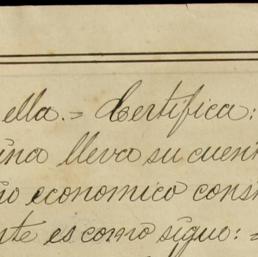 ella.= Certifica:
una lleva su cuent
io economico cons
te es como sigue:=